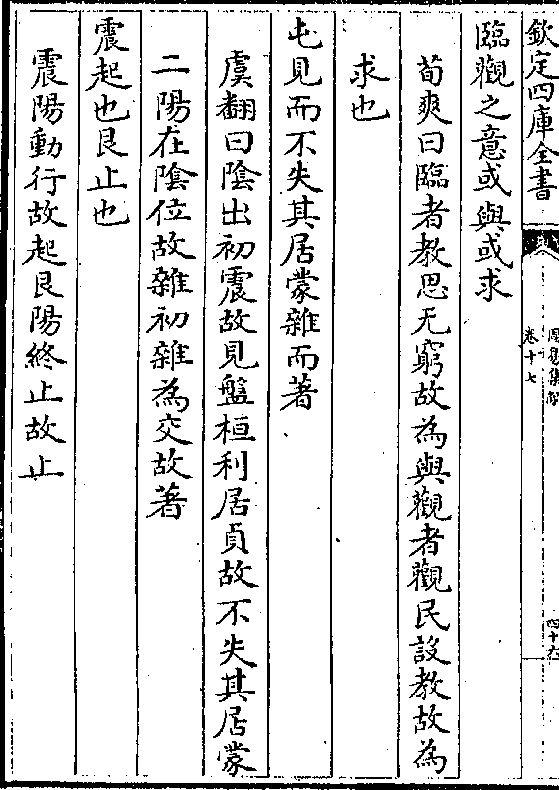 欽定四庫全書
周易集解
卷十七
臨觀之意或與或求
荀爽曰臨者教思无窮故為與觀者觀民設教故為
求也
屯見而不失其居蒙雜而著
虞翻曰陰出初震故見盤桓利居貞故不失其居蒙
二陽在陰位故雜初雜為交故著
震起也艮止也
震陽動行故起艮陽終止故止